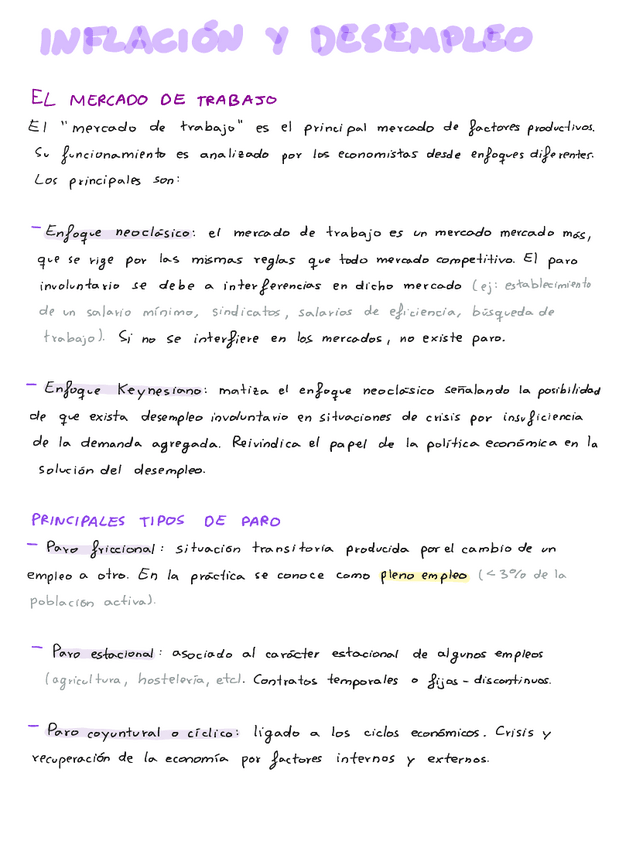 INFLACIÓN Y DESEMPLEO
EL MERCADO DE TRABAJO
El "mercado de trabajo" es el principal mercado de factores productivos.
Su funcionamiento es analizado por los economistas desde enfoques diferentes.
Los principales son:
- Enfoque neoclásico: el mercado de trabajo es un mercado mercado más,
que se rige por las mismas reglas que todo mercado competitivo. El paro
involuntario se debe a interferencias en dicho mercado (ej: establecimiento
de un salario mínimo, sindicatos, salarios de eficiencia, búsqueda de
trabajo). Si no se interfiere en los mercados, no existe paro.
- Enfoque Keynesiano: matiza el enfoque neoclásico señalando la posibilidad
de que exista desempleo involuntario en situaciones de crisis por insuficiencia
de la demanda agregada. Reivindica el papel de la política económica en la
solución del desempleo.
PRINCIPALES TIPOS DE PARO
- Paro friccional: situación transitoria producida por el cambio de un
empleo a otro. En la práctica se conoce como pleno empleo (<3% de la
población activa).
- Paro estacional: asociado al carácter estacional de algunos empleos
(agricultura, hostelería, etc). Contratos temporales o fijos-discontinuos.
- Paro coyuntural o cíclico: ligado a los ciclos económicos. Crisis y
recuperación de la economía por factores internos y externos.